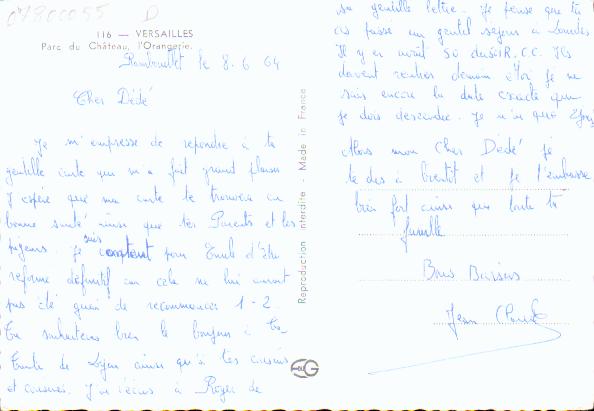 07800055 D
116 — VERSAILLES
Parc du Château, l'Orangerie.
Rambouillet le 8.6.64
Cher Dédé
Je m'empresse de repondre à ta
gentille carte qui m'a fait grand plaisir
J'espère que ma carte te trouvera en
bonne santé ainsi que tes Parents et les
pigeons. Je suis content pour Emile d'être
réformé définitif car cela ne lui aurait
pas été guai de recommencer 1-2
Tu souhaiteras bien le bonjour à ta
Tante de Dijon ainsi qu'à tes cousins
et cousines. J'ai écris à Roger de
sa gentille lettre. Je pense que tu
as passé un gentil sejour à Lourdes
Il y en avait 50 du 501 R.C.C. Ils
doivent rentrer demain Moi je ne
sais encore la date exacte que
je dois descendre. Je n'ai que
Alors mon Cher Dédé je
te dis à bientôt et je t'embrasse
bien fort ainsi que toute ta
famille
Bons Baisers
Jean Claude
Reproduction interdite - Made in France